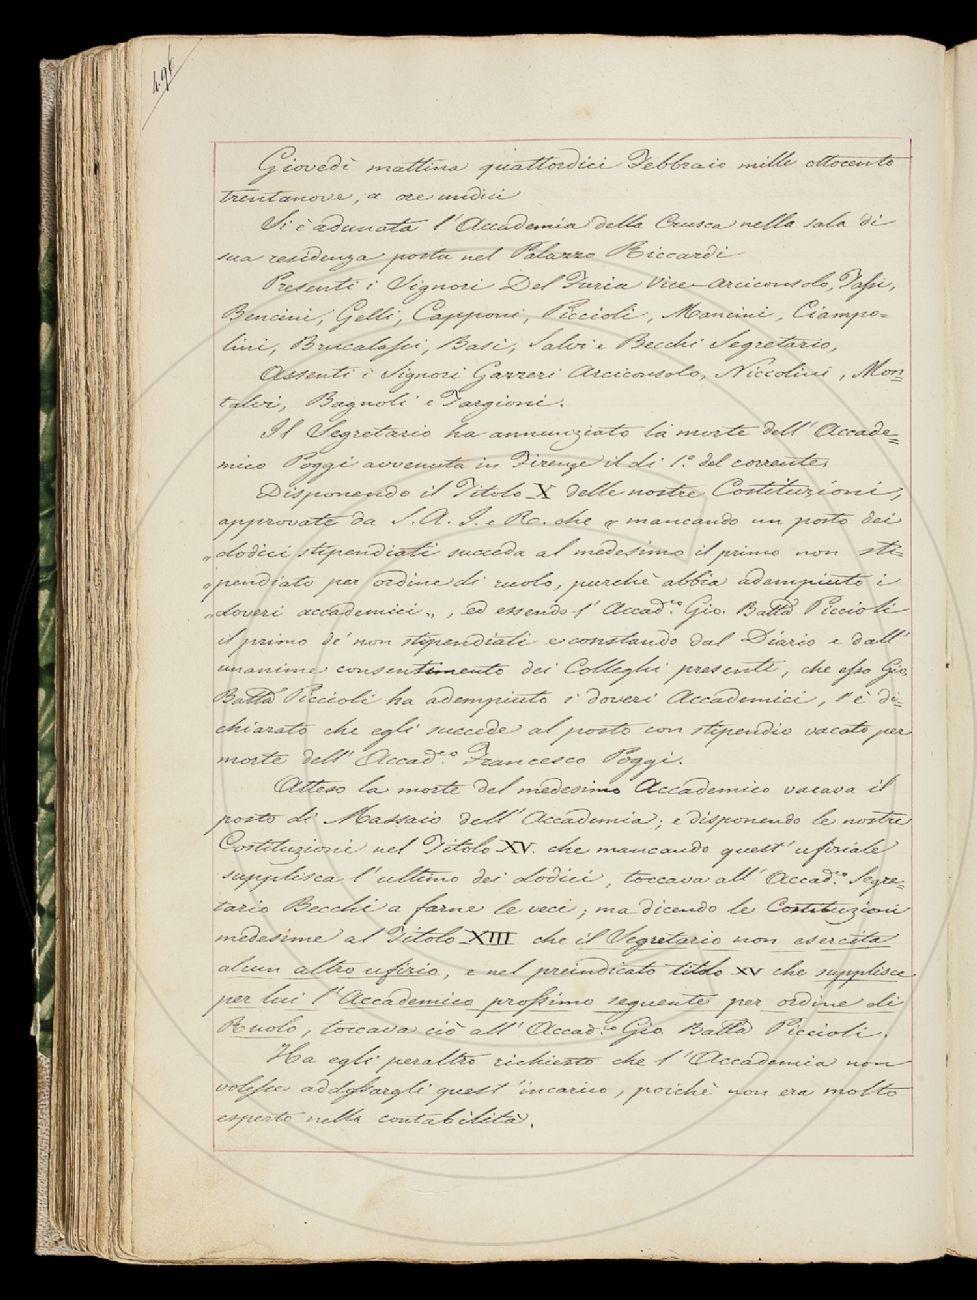 496
Giovedì mattina quattordici Febbraio mille ottocento
trentanove, a ore undici
Si è adunata l'Accademia della Crusca nella sala di
sua residenza posta nel Palazzo Riccardi
Presenti i Signori Del Furia Vice-arciconsolo, Tassi,
Bencini, Gelli, Capponi, Piccioli, Mancini, Ciampo=
lini, Bruscalassi, Basi, Salvi e Becchi Segretario,
Assenti i Signori Gazzeri Arciconsolo, Niccolini, Mon=
talvi, Bagnoli e Targioni.
Il Segretario ha annunziato la morte dell'Accade=
mico Poggi avvenuta in Firenze il dì 1.º del corrente.
Disponendo il Titolo X delle nostre Costituzioni,
approvate da S. A. I. e R. che „ mancando un posto dei
„ dodici stipendiati succeda al medesimo il primo non sti=
„ pendiato per ordine di ruolo, purchè abbia adempiuto i
„ doveri accademici „, ed essendo l'Accad.co Gio. Batta Piccioli
il primo de' non stipendiati e constando dal Diario e dall'
unanime consentimento dei Colleghi presenti, che esso Gio.
Batta Piccioli ha adempiuto i doveri Accademici, s'è di=
chiarato che egli succede al posto con stipendio vacato per
morte dell'Accad.co Francesco Poggi.
Atteso la morte del medesimo Accademico vacava il
posto di Massaio dell'Accademia; e disponendo le nostre
Costituzioni nel Titolo XV. che mancando quest'ufiziale
supplisca l'ultimo dei dodici, toccava all'Accad.co Segre=
tario Becchi a farne le veci; ma dicendo le Costituzioni
medesime al Titolo XIII che il Segretario non esercita
alcun altro ufizio, e nel preindicato titolo XV che supplisce
per lui l'Accademico prossimo seguente per ordine di
Ruolo, toccava ciò all'Accad.co Gio Batta Piccioli.
Ha egli peraltro richiesto che l'Accademia non
volesse addossargli quest'incarico, poichè non era molto
esperto nella contabilità.